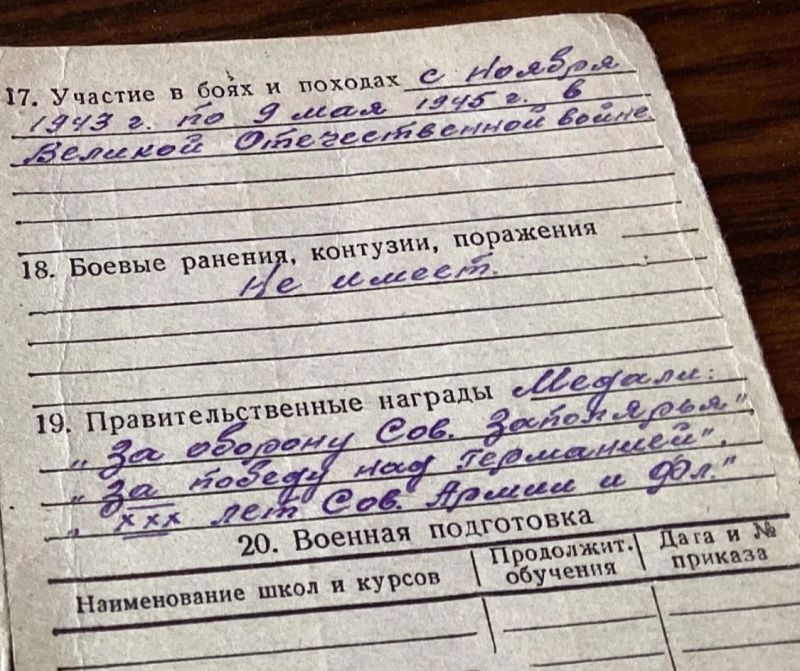 17. Участие в боях и походах с Ноября
1943 г. по 9 мая 1945 г. в
Великой Отечественной войне
18. Боевые ранения, контузии, поражения
Не имеет.
19. Правительственные награды Медали:
„За оборону Сов. Заполярья",
„За победу над Германией",
„XXX лет Сов. Армии и Фл."
20. Военная подготовка
Наименование школ и курсов
Продолжит. обучения
Дата и № приказа